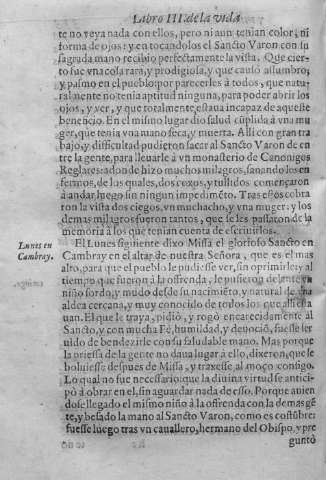 Libro III. de la vida
te no veya nada con ellos, pero ni aun tenian color, ni
forma de ojos: y en tocandolos el Sancto Varon con su
sagrada mano recibio perfectamente la vista. Que cier-
to fue vna cosa rara, y prodigiosa, y que causò assumbro,
y pasmo en el pueblo: por parecerles à todos, que natu-
ralmente no tenia aptitud ninguna, para poder abrir los
ojos, y ver, y que totalmente estaua incapaz de aqueste
beneficio. En el mismo lugar dio salud cũplida à vna mu
ger, que tenia vna mano seca, y muerta. Alli con gran tra
bajo, y difficultad pudieron sacar al Sancto Varon de en
tre la gente, para lleuarle à vn monasterio de Canonigos
Reglares: adonde hizo muchos milagros, sanando los en
fermos, de los quales, dos coxos, y tullidos començaron
à andar luego sin ningun impedimẽto. Tras estos cobra
ron la vista dos ciegos, vn muchacho, y vna muger: y los
demas milagros fueron tantos, que se les passaron de la
memoria à los que tenian cuenta de escriuirlos.
Lunes en
Cambray.
El Lunes siguiente dixo Missa el glorioso Sancto en
Cambray en el altar de nuestra Señora, que es el mas
alto, para que el pueblo le pudiesse ver, sin oprimirle: y al
tiempo que fueron à la offrenda, le pusieron delante vn
niño sordo, y mudo desde su nacimiẽto, y natural de vna
aldea cercana, y muy conocido de todos los que alli esta
uan. El que le traya, pidiò, y rogò encarecidamente al
Sancto, y con mucha Fè, humildad, y deuociõ, fuesse ser
uido de bendezirle con su saludable mano. Mas porque
la priessa de la gente no daua lugar à ello, dixeron, que le
boluiesse despues de Missa, y traxesse al moço consigo.
Lo qual no fue necessario: que la diuina virtud se antici-
pò à obrar en el, sin aguardar nada de esso. Porque auien
dose llegado el mismo niño à la offrenda con la demas gẽ
te, y besado la mano al Sancto Varon, como es costũbre:
fuesse luego tras vn cauallero, hermano del Obispo, y pre
guntò